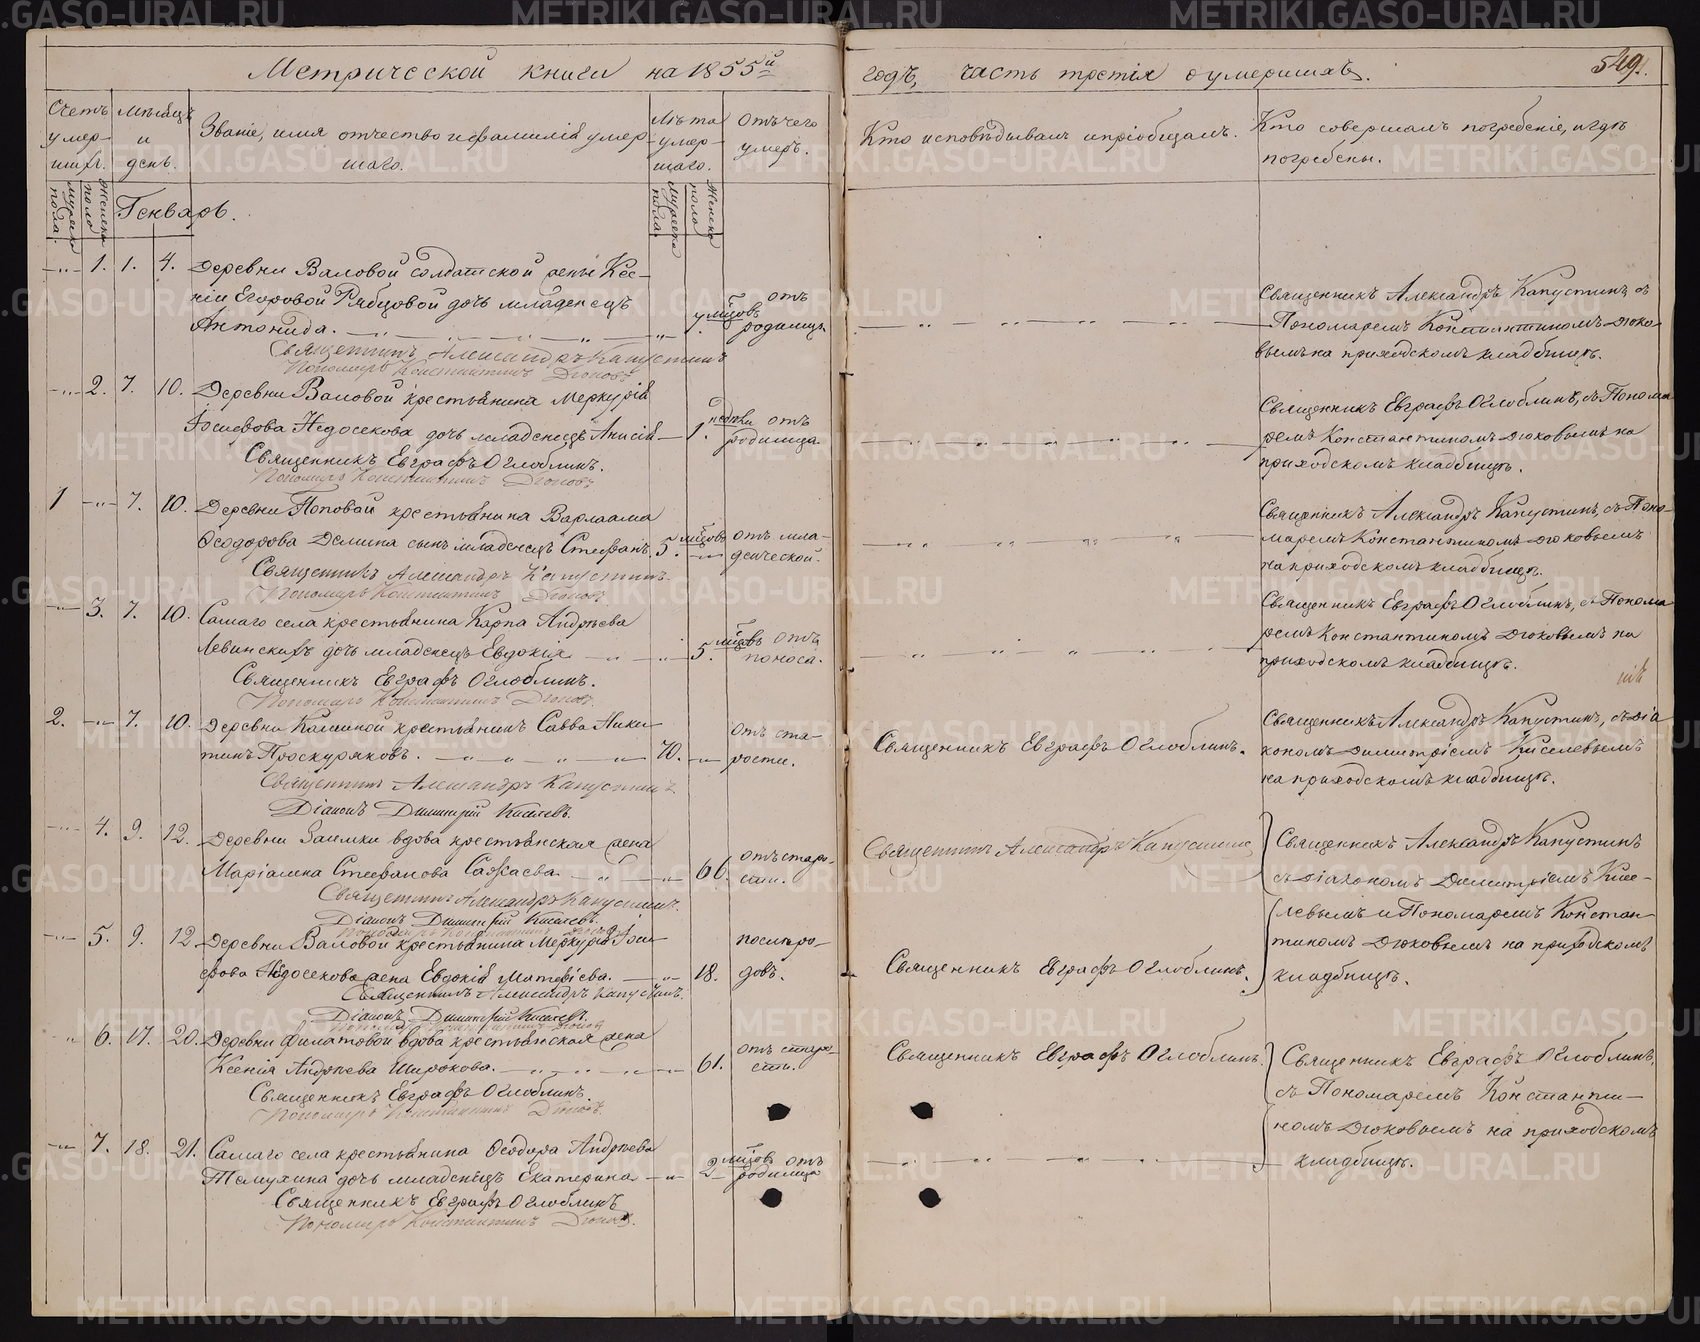 Метрической книги на 1855й
годъ, часть третія о умершихъ.
549.
Счетъ умер-шихъ.
Мѣсяцъ и день.
Званіе, имя отчество и фамилія умер-
шаго.
Лѣта умер-шаго.
Отъ чего умеръ.
Кто исповѣдывалъ и пріобщалъ.
Кто совершалъ погребеніе, и гдѣ
погребены.
мужеска пола.
женска пола
Генварь.
мужеска пола.
женска пола
1. 1. 4. Деревни Валовой солдатской жены Ксе-
ніи Егоровой Рябцовой дочь младенецъ
Антонида.
мѣсцовъ отъ родимца
Священникъ Александръ Капустинъ
Пономарь Константинъ Дюковъ
Священникъ Александръ Капустинъ, съ
Пономаремъ Константиномъ Дюко-
вымъ на приходскомъ кладбищѣ.
2. 7. 10. Деревни Валовой крестьянина Меркурія
Іосифова Недосекова дочь младенецъ Анисія 1. недѣли отъ родимца
Священникъ Евграфъ Оглоблинъ.
Пономарь Константинъ Дюковъ
Священникъ Евграфъ Оглоблинъ, съ Понома
ремъ Константиномъ Дюковымъ на
приходскомъ кладбищѣ.
1 7. 10. Деревни Поповой крестьянина Варлаама
Ѳеодорова Демина сынъ младенецъ Стефанъ 5. мѣсцовъ отъ мла-
денческой.
Священникъ Александръ Капустинъ.
Пономарь Константинъ Дюковъ
Священникъ Александръ Капустинъ, съ Поно-
маремъ Константиномъ Дюковымъ
на приходскомъ кладбищѣ.
3. 7. 10. Самаго села крестьянина Карпа Андреева
Левинскихъ дочь младенецъ Евдокія 5. мѣсцовъ отъ
поноса.
Священникъ Евграфъ Оглоблинъ.
Пономарь Константинъ Дюковъ.
Священникъ Евграфъ Оглоблинъ, съ Понома
ремъ Константиномъ Дюковымъ на
приходскомъ кладбищѣ.
2. 7. 10. Деревни Калиной крестьянинъ Савва Ники-
тинъ Проскуряковъ. 70. отъ ста-
рости.
Священникъ Александръ Капустинъ
Діаконъ Димитрій Киселевъ.
Священникъ Евграфъ Оглоблинъ.
Священникъ Александръ Капустинъ, съ Діа
кономъ Димитріемъ Киселевымъ
на приходскомъ кладбищѣ.
4. 9. 12. Деревни Заимки вдова крестьянская жена
Маріамна Стефанова Сажаева 66. отъ старо-
сти.
Священникъ Александръ Капустинъ.
Діаконъ Димитрій Киселевъ.
Священникъ Александръ Капустинъ
Священникъ Александръ Капустинъ
съ Діакономъ Димитріемъ Кисе-
левымъ и Пономаремъ Констан-
тиномъ Дюковымъ на приходскомъ
кладбищѣ.
5. 9. 12 Деревни Валовой крестьянина Меркурія Іоси-
фова Недосекова жена Евдокія Матфіева. 18. послѣ ро-
довъ.
Священникъ Александръ Капустинъ.
Діаконъ Димитрій Киселевъ.
Священникъ Евграфъ Оглоблинъ.
6. 17. 20. Деревни Филатовой вдова крестьянская жена
Ксенія Андреева Широкова. 61. отъ старо-
сти.
Священникъ Евграфъ Оглоблинъ
Пономарь Константинъ Дюковъ.
Священникъ Евграфъ Оглоблинъ.
Священникъ Евграфъ Оглоблинъ,
съ Пономаремъ Константи-
номъ Дюковымъ на приходскомъ
кладбищѣ.
7. 18. 21. Самаго села крестьянина Ѳеодора Андреева
Телмухина дочь младенецъ Екатерина 2 мѣсцовъ отъ
родимца
Священникъ Евграфъ Оглоблинъ
Пономарь Константинъ Дюковъ.
METRIKI.GASO-URAL.RU